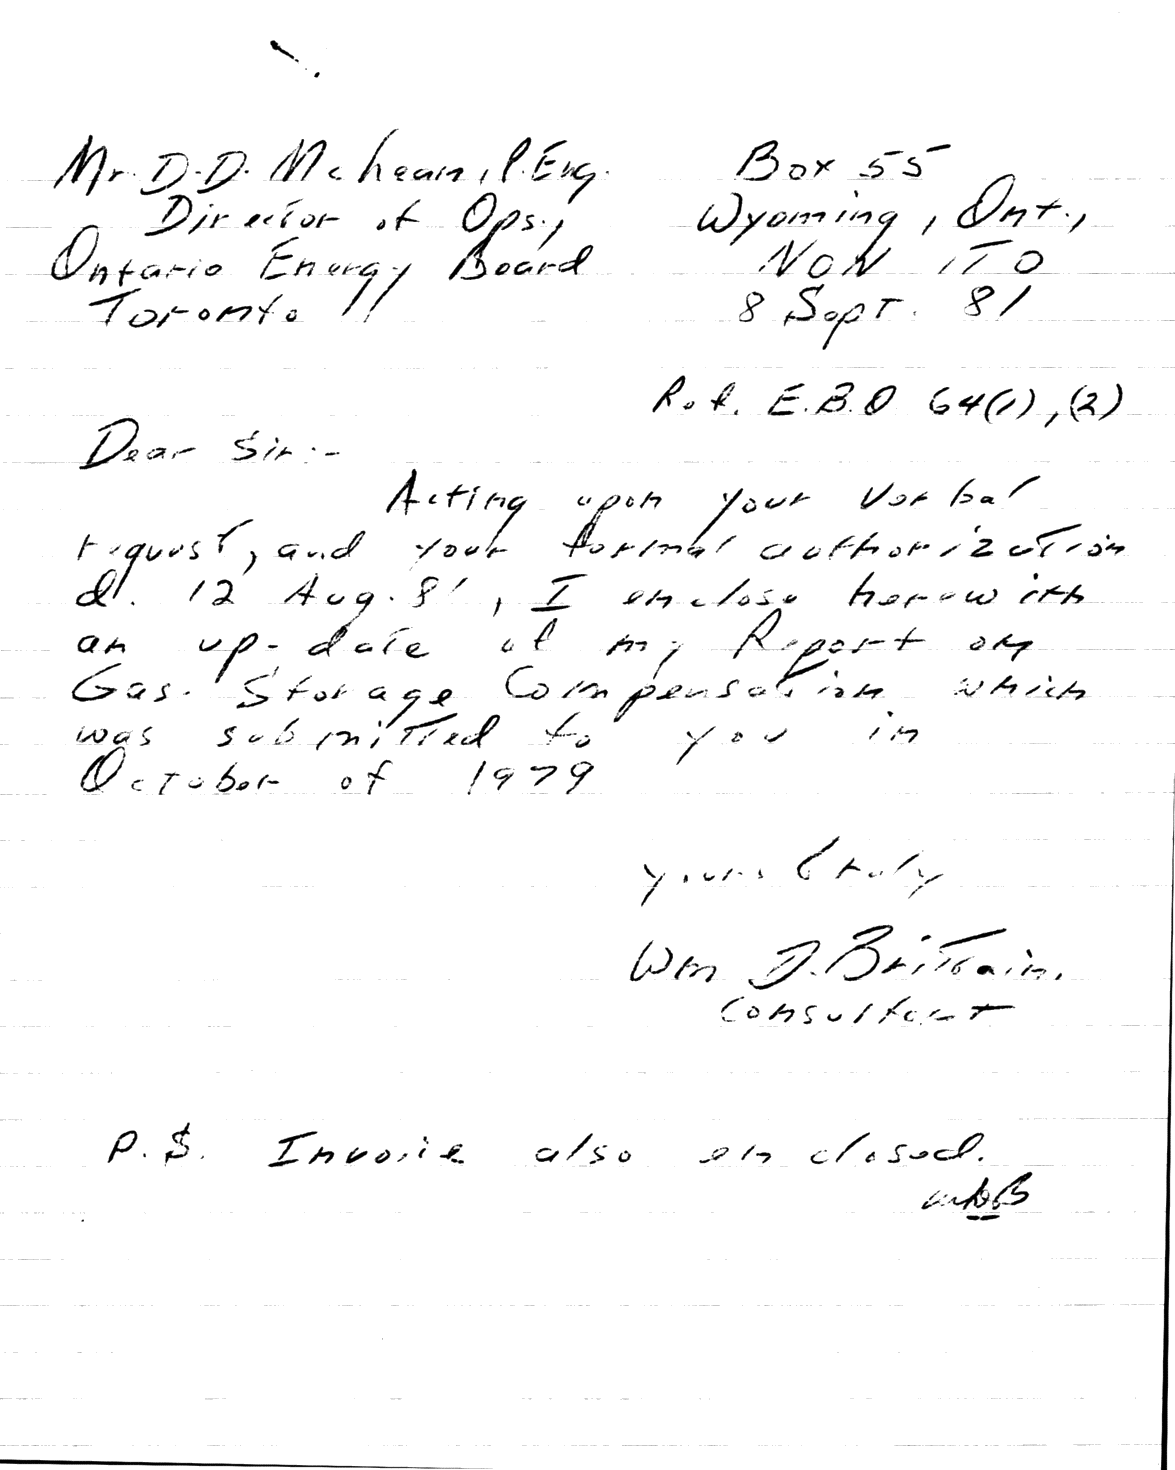 Mr. D.D. McLean, P. Eng.
Director of Ops.,
Ontario Energy Board
Toronto
Box 55
Wyoming, Ont.,
N0N 1T0
8 Sept. 81
Ref. E.B.O 64(1),(2)
Dear Sir:-
Acting upon your verbal
request, and your formal authorization
d. 12 Aug. 81, I enclose herewith
an up-date of my Report on
Gas Storage Compensation which
was submitted to you in
October of 1979
yours truly
Wm D. Brittain.
Consultant
P.S. Invoice also enclosed.
WDB